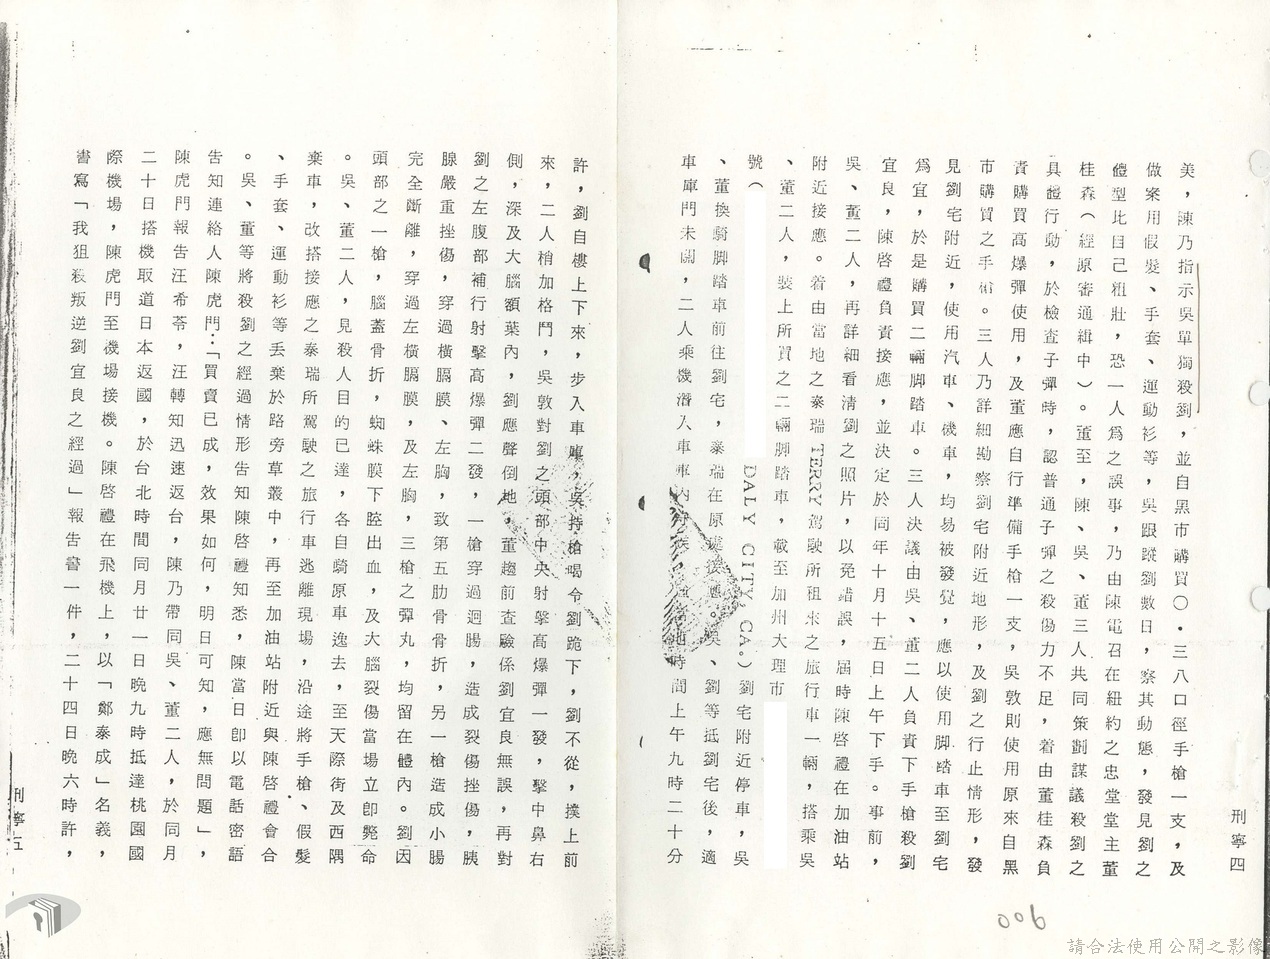 美，陳乃指示吳單獨殺劉，並自黑市購買〇．三八口徑手槍一支，及
做案用假髮、手套、運動衫等，吳跟蹤劉數日，察其動態，發見劉之
體型比自己粗壯，恐一人爲之誤事，乃由陳電召在紐約之忠堂堂主董
桂森（經原審通緝中）。董至，陳、吳、董三人共同策劃謀議殺劉之
具體行動，於檢查子彈時，認普通子彈之殺傷力不足，着由董桂森負
責購買高爆彈使用，及董應自行準備手槍一支，吳敦則使用原來自黑
市購買之手槍。三人乃詳細勘察劉宅附近地形，及劉之行止情形，發
見劉宅附近，使用汽車、機車，均易被發覺，應以使用脚踏車至劉宅
爲宜，於是購買二輛脚踏車。三人決議由吳、董二人負責下手槍殺劉
宜良，陳啓禮負責接應，並決定於同年十月十五日上午下手。事前，
吳、董二人，再詳細看清劉之照片，以免錯誤，屆時陳啓禮在加油站
附近接應。着由當地之泰瑞TERRY駕駛所租來之旅行車一輛，搭乘吳
、董二人，裝上所買之二輛脚踏車，載至加州大理市
號（ DALY CITY, CA。）劉宅附近停車，吳
、董換騎脚踏車前往劉宅，泰瑞在原處接應。吳、劉等抵劉宅後，適
車庫門未關，二人乘機潛入車庫內 時間上午九時二十分
刑寧四
許，劉自樓上下來，步入車庫，吳持槍喝令劉跪下，劉不從，撲上前
來，二人稍加格鬥，吳敦對劉之頭部中央射擊高爆彈一發，擊中鼻右
側，深及大腦額葉內，劉應聲倒地，董趨前查驗係劉宜良無誤，再對
劉之左腹部補行射擊高爆彈二發，一槍穿過迴腸，造成裂傷挫傷，胰
腺嚴重挫傷，穿過橫膈膜、左胸，致第五肋骨骨折，另一槍造成小腸
完全斷離，穿過左橫膈膜，及左胸，三槍之彈丸，均留在體內。劉因
頭部之一槍，腦蓋骨折，蜘蛛膜下腔出血，及大腦裂傷當場立即斃命
。吳、董二人，見殺人目的已達，各自騎原車逸去，至天際街及西隅
棄車，改搭接應之泰瑞所駕駛之旅行車逃離現場，沿途將手槍、假髮
、手套、運動衫等丟棄於路旁草叢中，再至加油站附近與陳啓禮會合
。吳、董等將殺劉之經過情形告知陳啓禮知悉，陳當日卽以電話密語
告知連絡人陳虎門：「買賣已成，效果如何，明日可知，應無問題」，
陳虎門報告汪希苓，汪轉知迅速返台，陳乃帶同吳、董二人，於同月
二十日搭機取道日本返國，於台北時間同月廿一日晚九時抵達桃園國
際機場，陳虎門至機場接機。陳啓禮在飛機上，以「鄭泰成」名義，
書寫「我狙殺叛逆劉宜良之經過」報告書一件，二十四日晚六時許，
刑寧五
006
請合法使用公開之影像